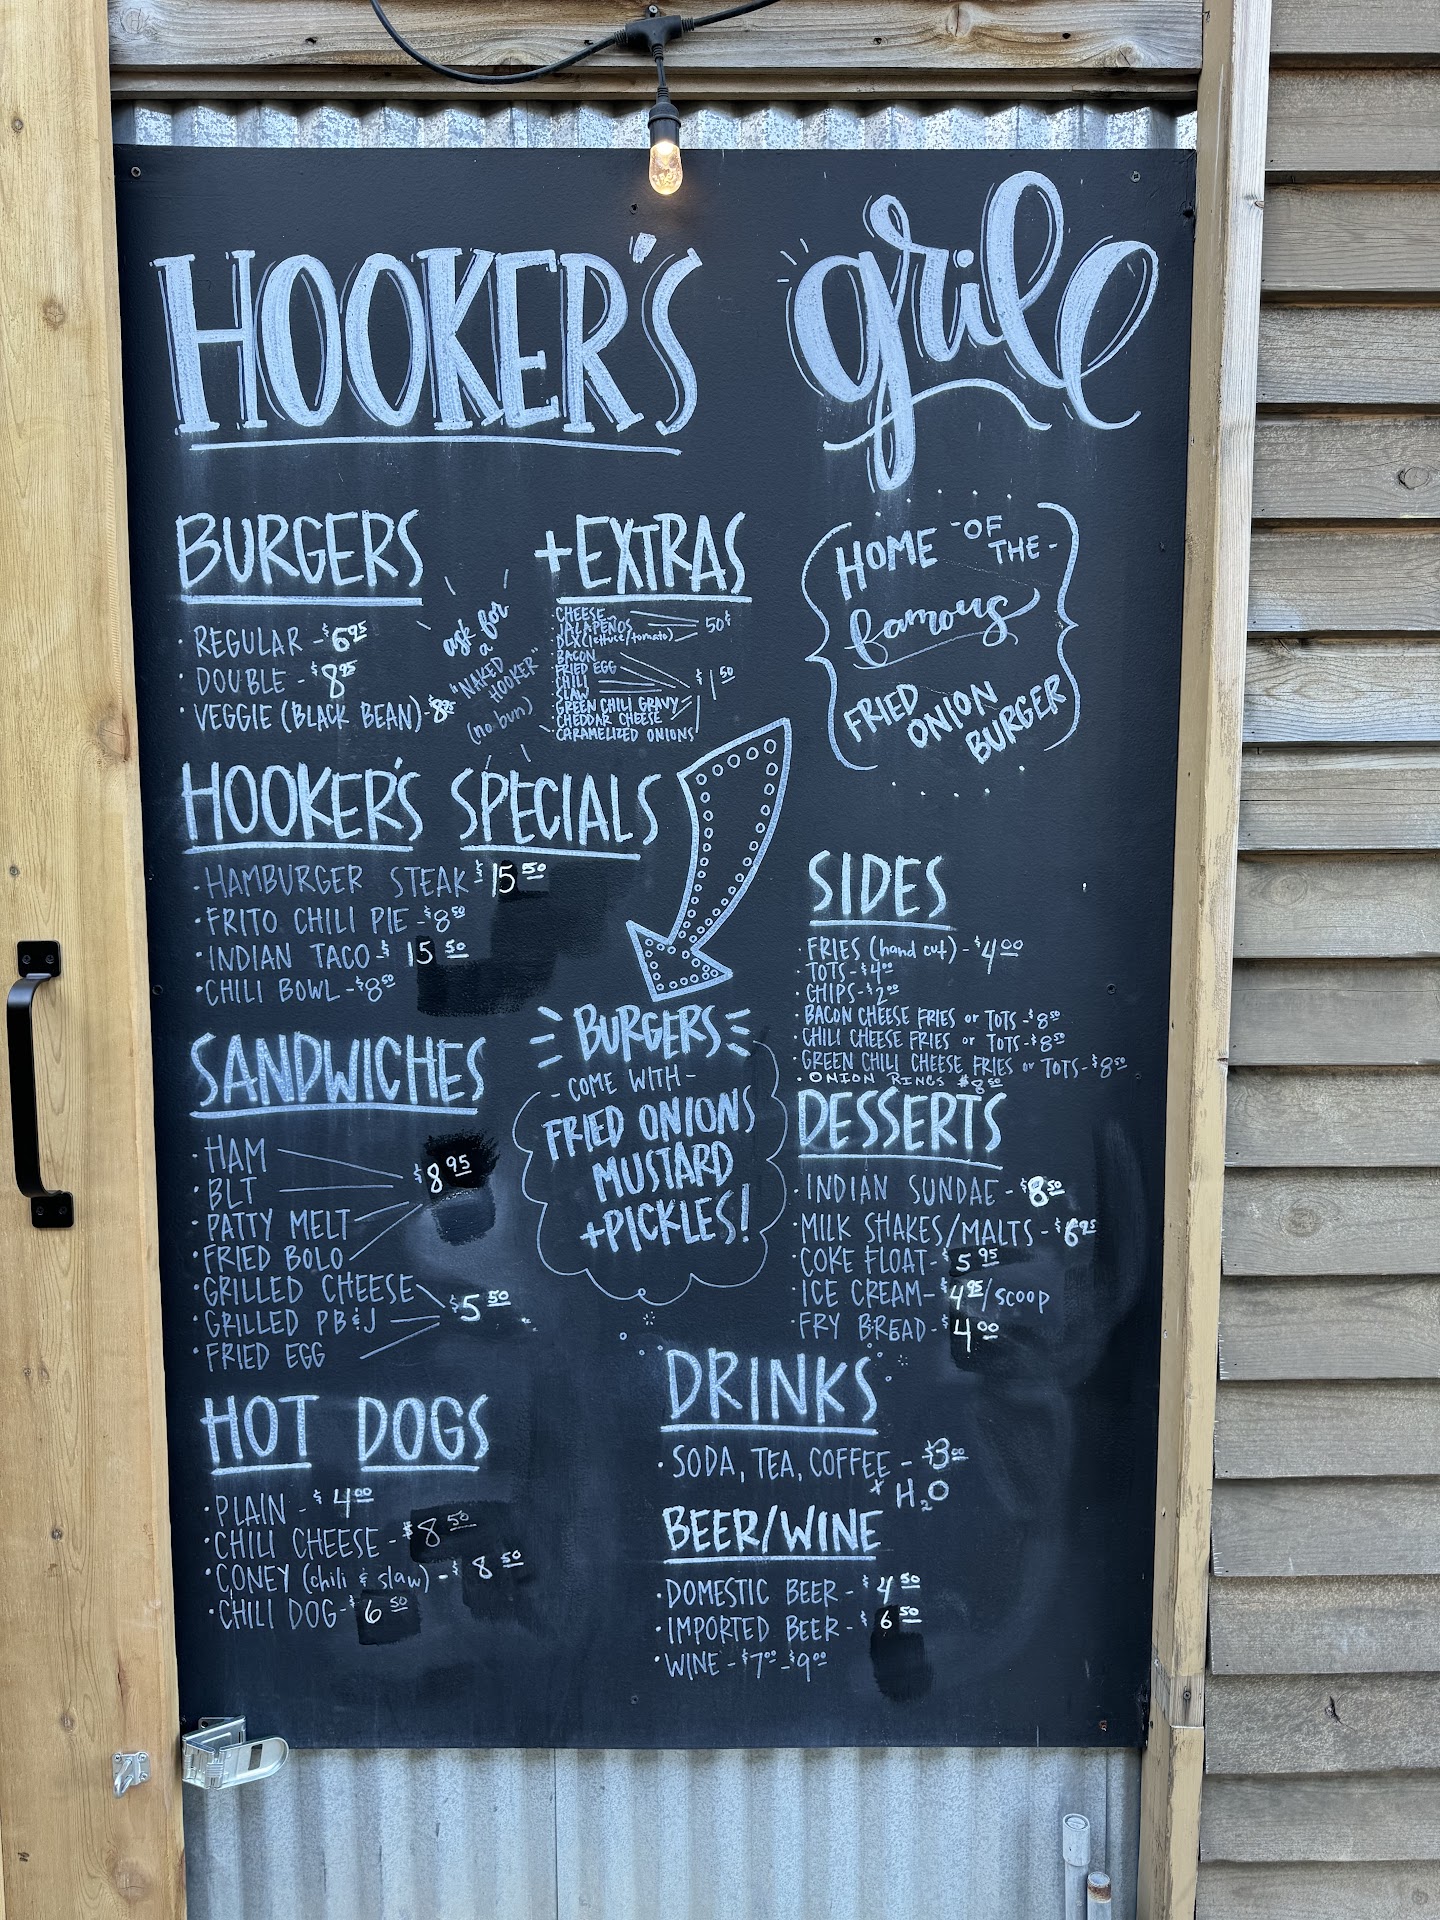 HOOKER'S grill
BURGERS
· REGULAR - $6.95
· DOUBLE - $8.95
· VEGGIE (BLACK BEAN) - $8.95
ask for
a
"NAKED
HOOKER"
(no bun)
+EXTRAS
· CHEESE
· JALAPEÑOS
· DLX (lettuce/tomato)
50¢
· BACON
· FRIED EGG
· CHILI
· SLAW
· GREEN CHILI GRAVY
· CHEDDAR CHEESE
· CARAMELIZED ONIONS
$1.50
HOME -OF
THE-
famous
FRIED
ONION
BURGER
HOOKER'S SPECIALS
· HAMBURGER STEAK - $15 50
· FRITO CHILI PIE - $8 50
· INDIAN TACO - $15 50
· CHILI BOWL - $8 50
BURGERS
- COME WITH -
FRIED ONIONS
MUSTARD
+PICKLES!
SANDWICHES
· HAM
· BLT
· PATTY MELT
· FRIED BOLO
$8 95
· GRILLED CHEESE
· GRILLED PB&J
· FRIED EGG
$5 50
HOT DOGS
· PLAIN - $4 00
· CHILI CHEESE - $8 50
· CONEY (chili & slaw) - $8 50
· CHILI DOG - $6 50
SIDES
· FRIES (hand cut) - $4 00
· TOTS - $4 00
· CHIPS - $2 00
· BACON CHEESE FRIES or TOTS - $8 50
· CHILI CHEESE FRIES or TOTS - $8 50
· GREEN CHILI CHEESE FRIES or TOTS - $8 50
· ONION RINGS $8 50
DESSERTS
· INDIAN SUNDAE - $8 50
· MILK SHAKES/MALTS - $6 95
· COKE FLOAT - $5 95
· ICE CREAM - $4 95/scoop
· FRY BREAD - $4 00
DRINKS
· SODA, TEA, COFFEE - $3 00
+ H2O
BEER/WINE
· DOMESTIC BEER - $4 50
· IMPORTED BEER - $6 50
· WINE - $7 00 - $9 00